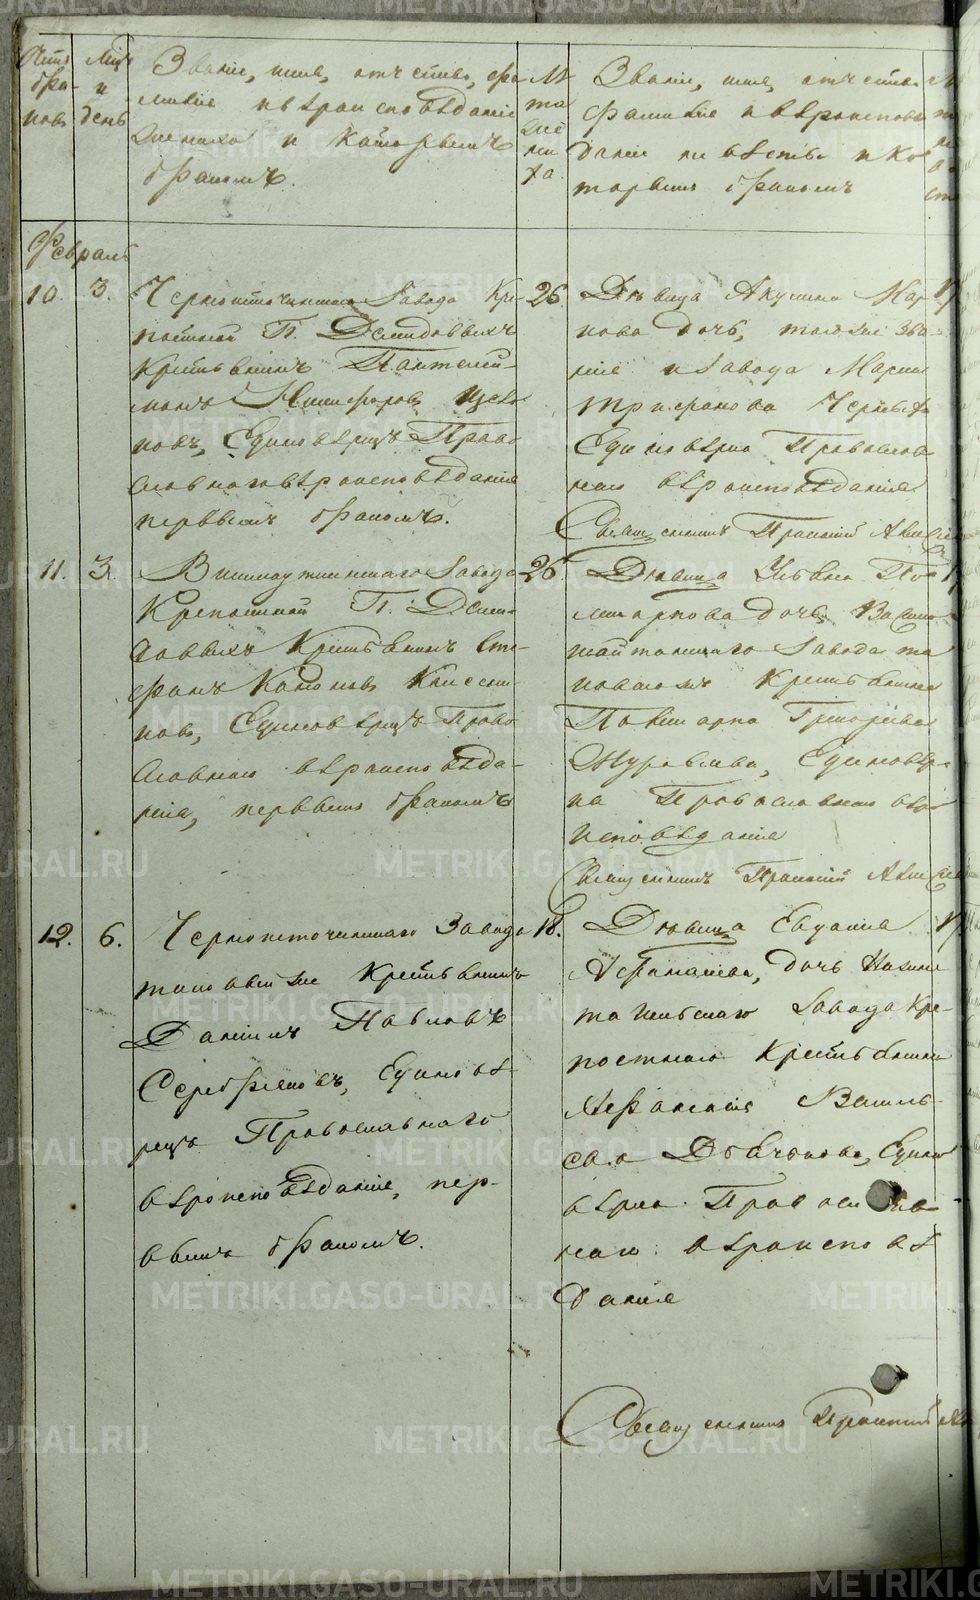 Счетъ
бра-
ковъ
Мцъ
и
день
Званіе, имя, отчество, фа-
милія и вѣроисповѣданіе
жениха и которымъ
бракомъ.
лѣта
жениха
Званіе, имя, отчество
фамилія и вѣроиспове
даніе невѣсты и ко
торымъ бракомъ
Февраль
10. 3.
Черноисточинскаго Завода Кре
постной Г. Демидовыхъ
Крестьянинъ Пантелей-
монъ Никифоровъ
новъ, Единовѣрецъ Право
славнаго вѣроисповѣданія
первымъ бракомъ.
26.
Дѣвица Акулина Мар
кова дочь, того же зва
нія и Завода Марка
Трифонова Черныхъ
Единовѣрка Православ
наго вѣроисповѣданія
Священникъ
11. 3.
Висимоуткинскаго Завода
Крепостной Г. Деми-
довыхъ Крестьянинъ Сте-
фанъ
новъ, Единовѣрецъ Право
славнаго вѣроисповѣда-
нія, первымъ бракомъ
26.
Дѣвица По
ликарпова дочь, Висимо
шайтанскаго Завода та
коваго же Крестьянина
Поликарпа Григорьева
Журавлева, Единовѣр-
ка Православнаго вѣро
исповѣданія
Священникъ
12. 6.
Черноисточинскаго Завода
таковой же Крестьянинъ
Даніилъ Павловъ
Серебряковъ, Единовѣ-
рецъ Православнаго
вѣроисповѣданія, пер-
вымъ бракомъ.
18.
Дѣвица Евдокія
Афанасьева, дочь Нижне
тагильскаго Завода кре-
постнаго Крестьянина
Афанасія Василь-
ева Единов
вѣрка Православ
наго вѣроисповѣ
данія
Священникъ
METRIKI.GASO-URAL.RU